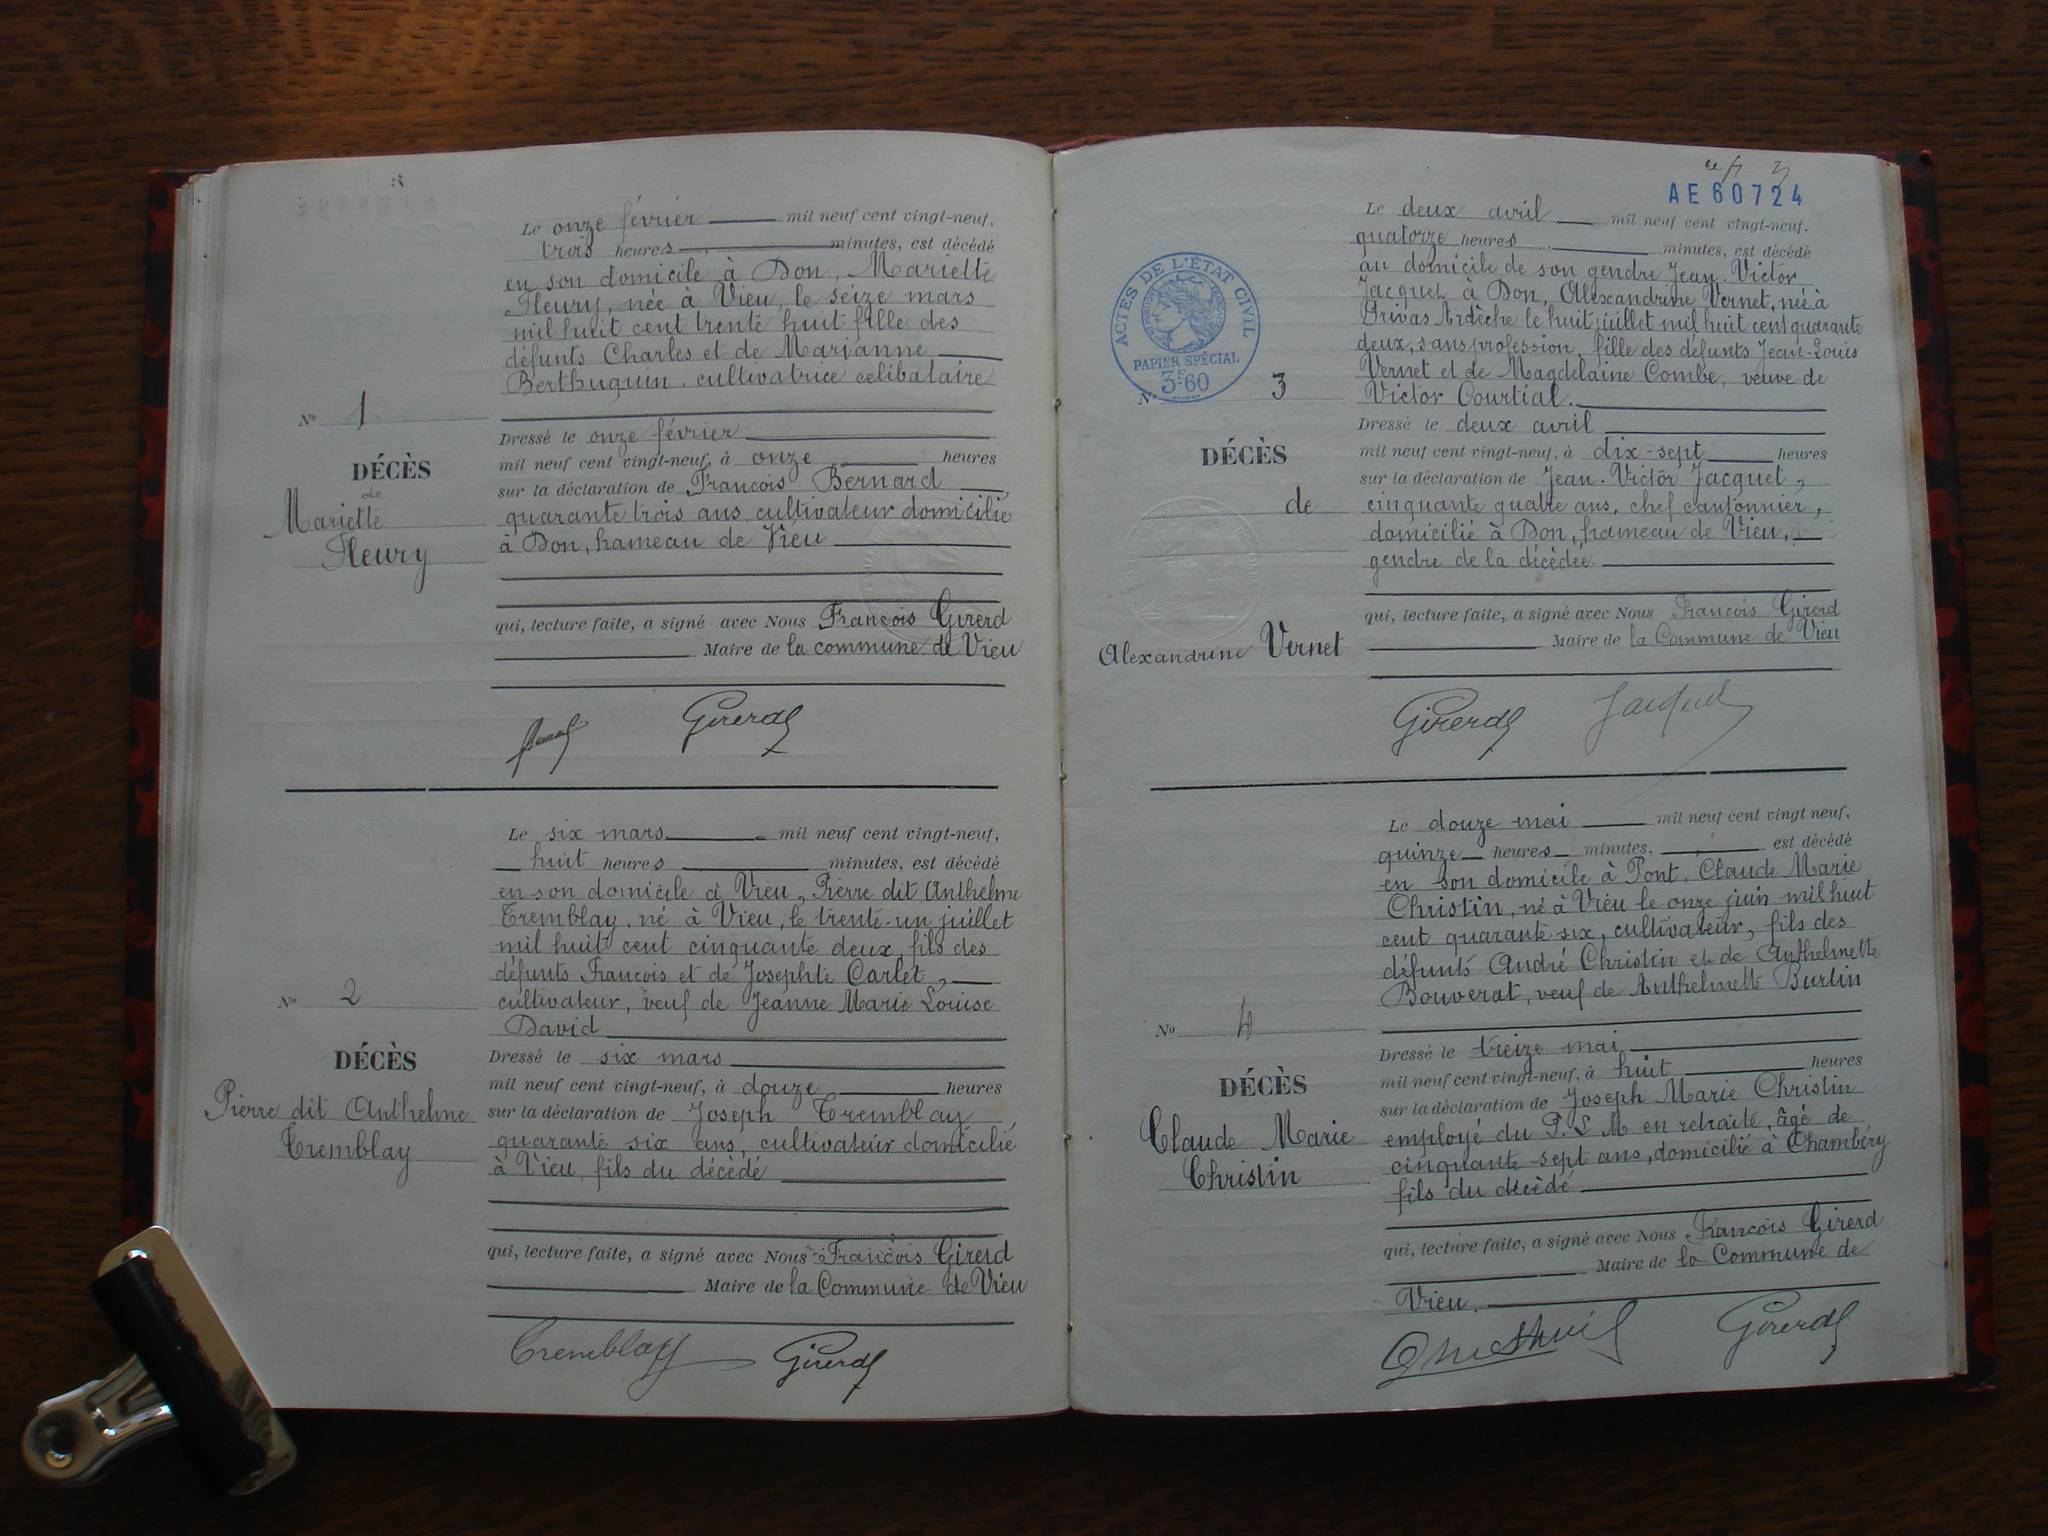 Le onze février mil neuf cent vingt-neuf,
trois heures minutes, est décédé
en son domicile à Don, Mariette
Fleury, née à Vieu, le seize mars
mil huit cent trente huit fille des
défunts Charles et de Marianne
Berthuquin. cultivatrice célibataire
No 1
DÉCÈS
de
Mariette
Fleury
Dressé le onze février
mil neuf cent vingt-neuf, à onze heures
sur la déclaration de François Bernard,
quarante trois ans, cultivateur domicilié
à Don, hameau de Vieu
qui, lecture faite, a signé avec Nous François Girerd
Maire de la commune de Vieu
Girerd
Le six mars mil neuf cent vingt-neuf,
huit heures minutes, est décédé
en son domicile à Vieu, Pierre dit Anthelme
Tremblay, né à Vieu, le trente-un juillet
mil huit cent cinquante deux, fils des
défunts François et de Josephte Carlet,
cultivateur, veuf de Jeanne Marie Louise
David
No 2
DÉCÈS
Pierre dit Anthelme
Tremblay
Dressé le six mars
mil neuf cent vingt-neuf, à douze heures
sur la déclaration de Joseph Tremblay
quarante six ans, cultivateur domicilié
à Vieu, fils du décédé
qui, lecture faite, a signé avec Nous François Girerd
Maire de la Commune de Vieu
Tremblay Girerd
AE60724
ACTES DE L'ÉTAT CIVIL
PAPIER SPÉCIAL
3F60
Le deux avril mil neuf cent vingt-neuf,
quatorze heures minutes, est décédé
au domicile de son gendre Jean-Victor
Jacquet à Don, Alexandrine Vernet, née à
Privas Ardèche le huit juillet mil huit cent quarante
deux, sans profession, fille des défunts Jean-Louis
Vernet et de Magdelaine Combe, veuve de
Victor Courtial.
No 3
DÉCÈS
de
Alexandrine Vernet
Dressé le deux avril
mil neuf cent vingt-neuf, à dix-sept heures
sur la déclaration de Jean-Victor Jacquet,
cinquante quatre ans, chef cantonnier,
domicilié à Don, hameau de Vieu,
gendre de la décédée.
qui, lecture faite, a signé avec Nous François Girerd
Maire de la Commune de Vieu
Girerd Jacquet
Le douze mai mil neuf cent vingt neuf,
quinze heures minutes, est décédé
en son domicile à Pont, Claude Marie
Christin, né à Vieu le onze juin mil huit
cent quarante six, cultivateur, fils des
défunts André Christin et de Anthelmette
Bouverat, veuf de Anthelmette Burlin
No 4
DÉCÈS
Claude Marie
Christin
Dressé le treize mai
mil neuf cent vingt-neuf, à huit heures
sur la déclaration de Joseph Marie Christin
employé du P.L M en retraite, âgé de
cinquante-sept ans, domicilié à Chambéry
fils du décédé
qui, lecture faite, a signé avec Nous François Girerd
Maire de la Commune de
Vieu.
Girerd